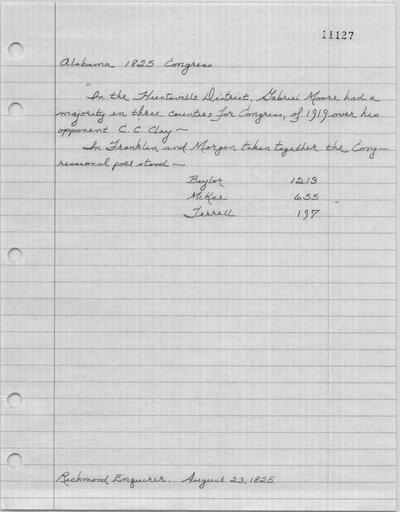 11127
Alabama 1825 Congress
"In the Huntsville District, Gabriel Moore had a
majority in three Counties for Congress, of 1919 over his
opponent C. C. Clay —
In Franklin and Morgan taken together the Cong-
ressional poll stood —
Baylor 1213
McKee 655 "
Terrell 197
Richmond Enquirer. August 23, 1825